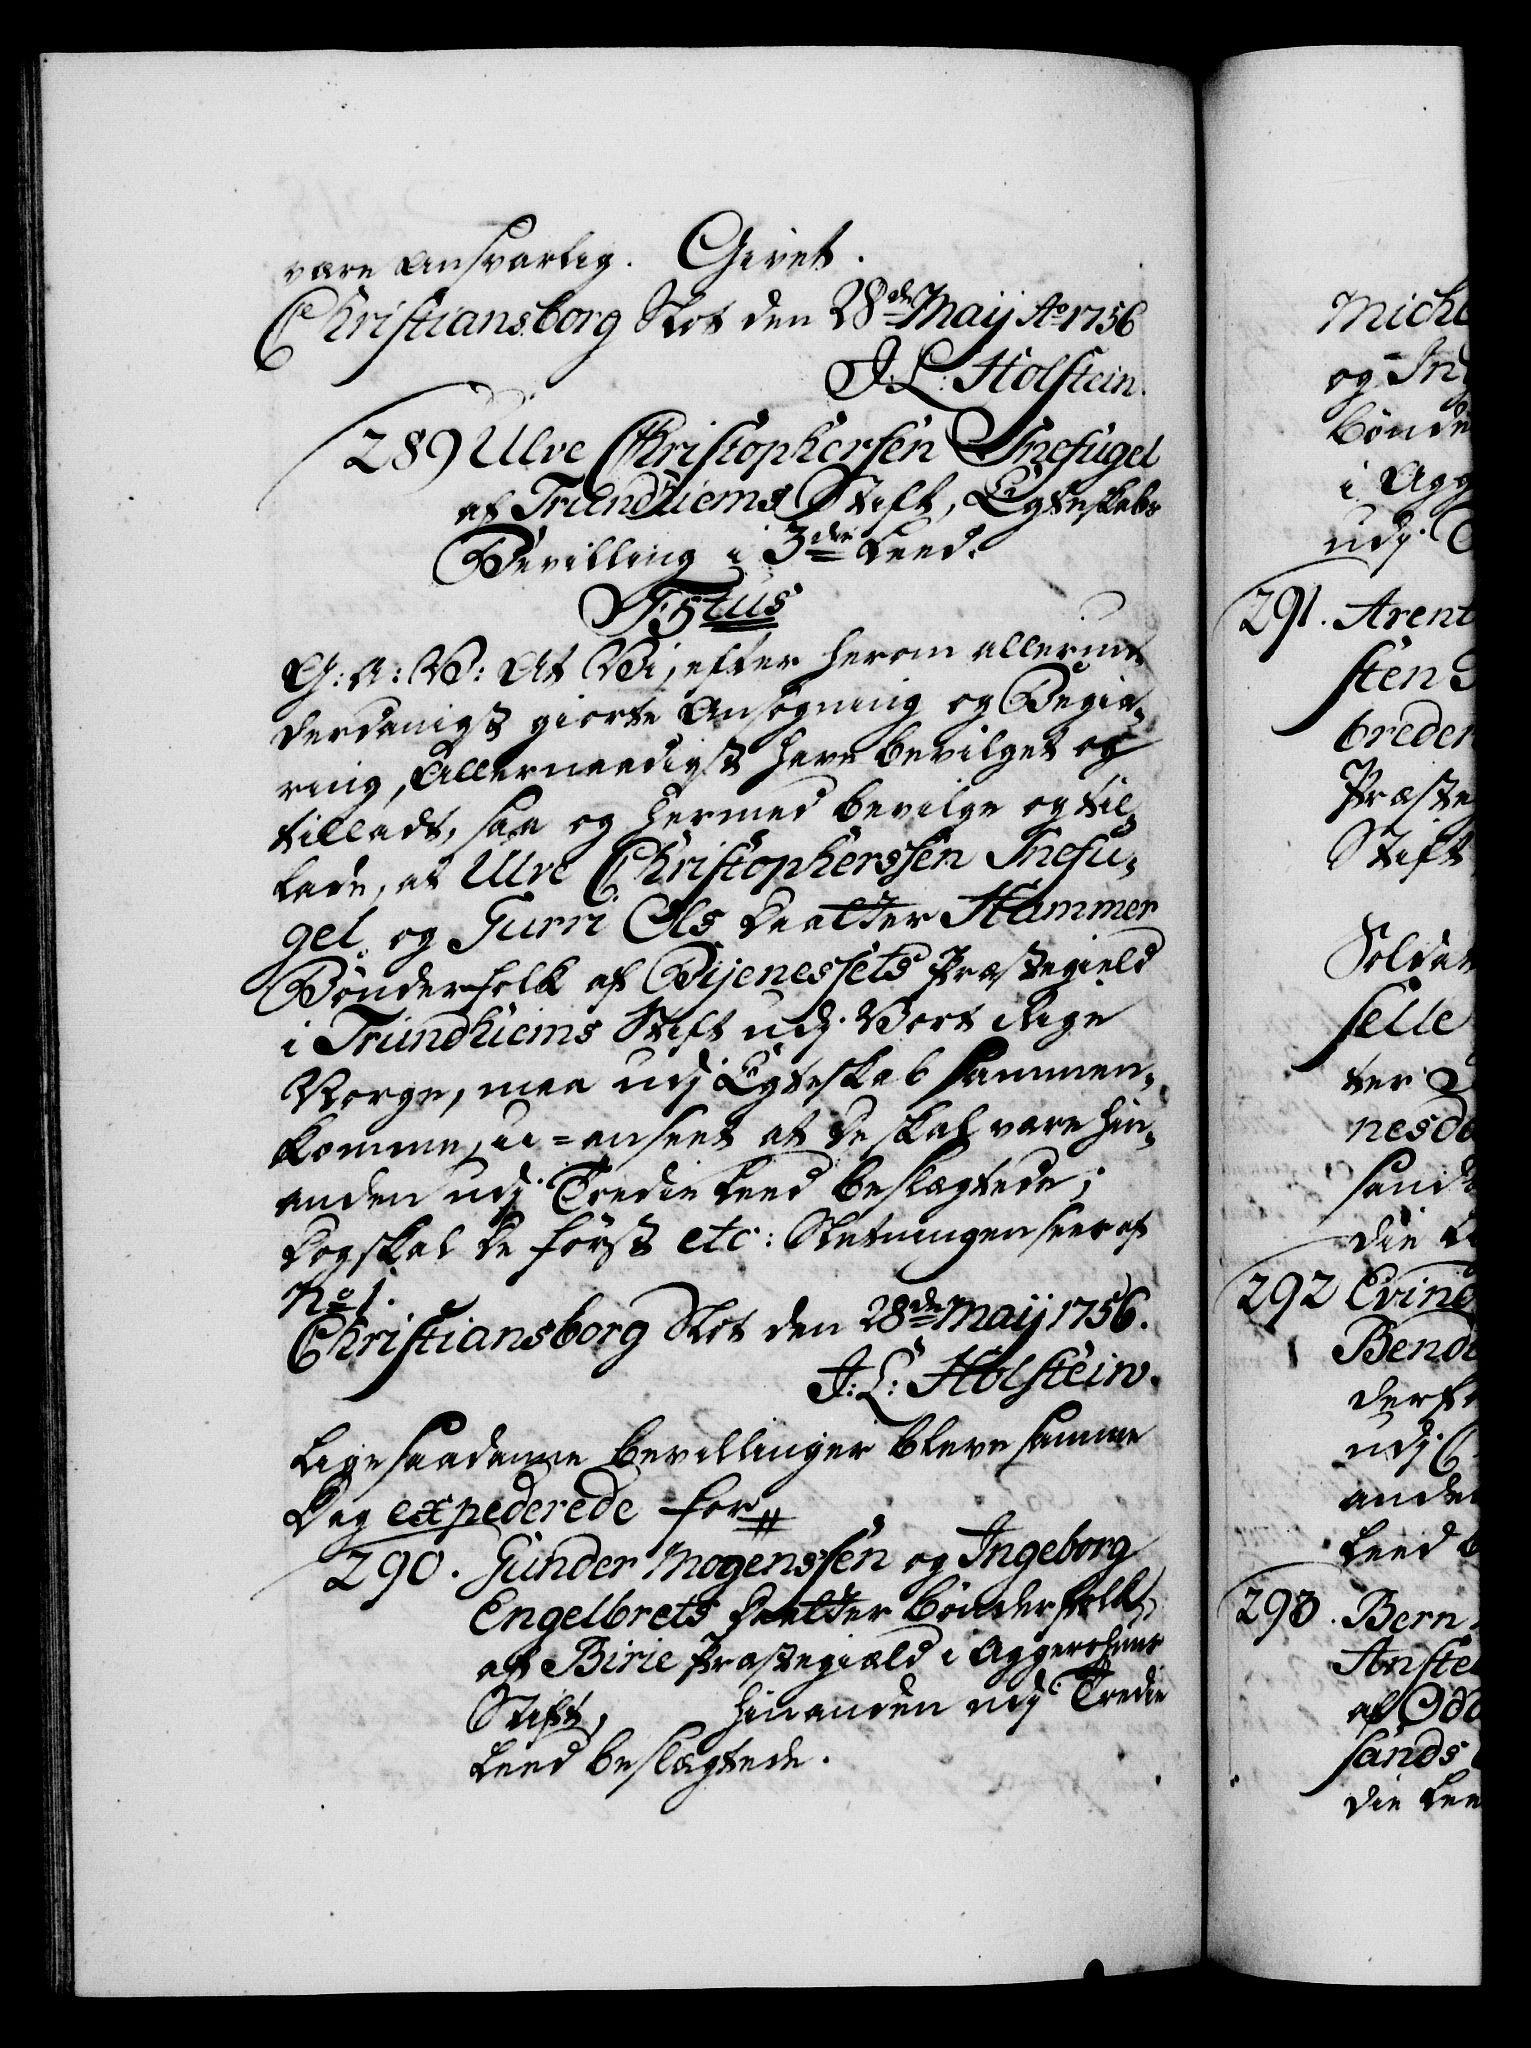 være Ansvarlig. Givet.
Christiansborg Slot den 28de Maij Ao 1756
J: L: Holstein.
289 Ulve Christophersen Snefugel
af Trundhiems Stift, Egteskabs
Bevilling i 3die Leed.
F5tus
G: A: V: At Vi, efter herom allerun¬
derdanigst giorte Ansøgning og Begiæ¬
ring, Allernaadigst have bevilget og
tilladt, saa og hermed bevilge og til¬
lade, at Ulve Christopherssen Snefu¬
gel og Gurri Ols Daatter Hammer
Bønderfolk af Bijenessets Præstegield
i Trundhiems Stift udj Vort Rige
Norge, maa udj Egteskab sammen¬
komme, u-anseet at de skal være hin¬
anden udj Tredie Leed beslægtede;
dog skal de først etc: Slutningen seer af
No 1.
Christiansborg Slot den 28de Maij 1756.
J: L: Holstein.
Lige saadanne bevillinger bleve samme
Dag expederede for
290. Gunder Mogenssen og Ingeborg
Engelbrets Daatter bønderfolk
af Birie Præstegiæld i Aggershuus
Stift, hinanden udj Tredie
Leed beslægtede.
Mich
og In
bønde
i Agg
udj
291. Arent
sten
breder
Præste
Stift
Soldat
selle
ter
nesda
sand
die
292 Evind
Bend
derf
udj
anden
Leed b
293. Bern
Anste
af Odd
sands
die Lee